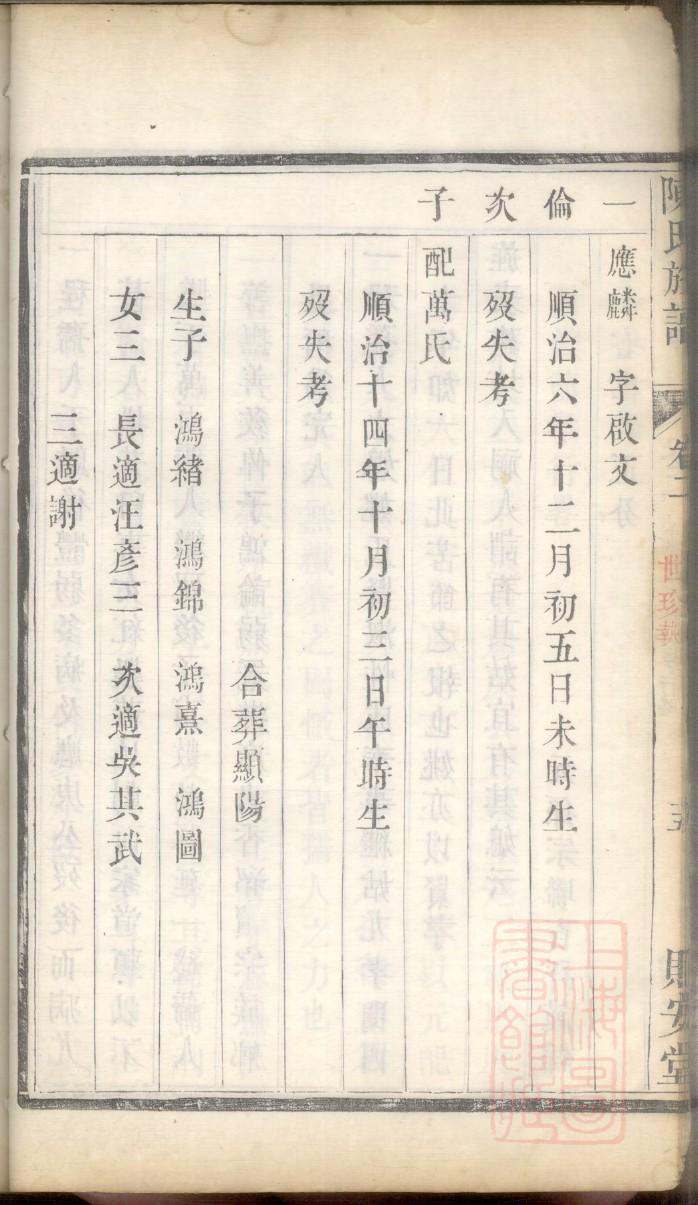 陳氏族譜
卷二
五
一倫次子
應麟 字啟文
順治六年十二月初五日未時生
歿失考
配萬氏
順治十四年十月初三日午時生
歿失考
合葬顯陽
生子 鴻緒 鴻錦 鴻熹 鴻圖
女三 長適汪彥三 次適吳其武
三適謝
上海圖書館藏